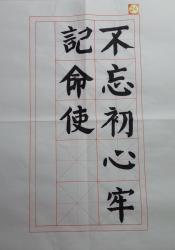 不忘初心牢
記命使